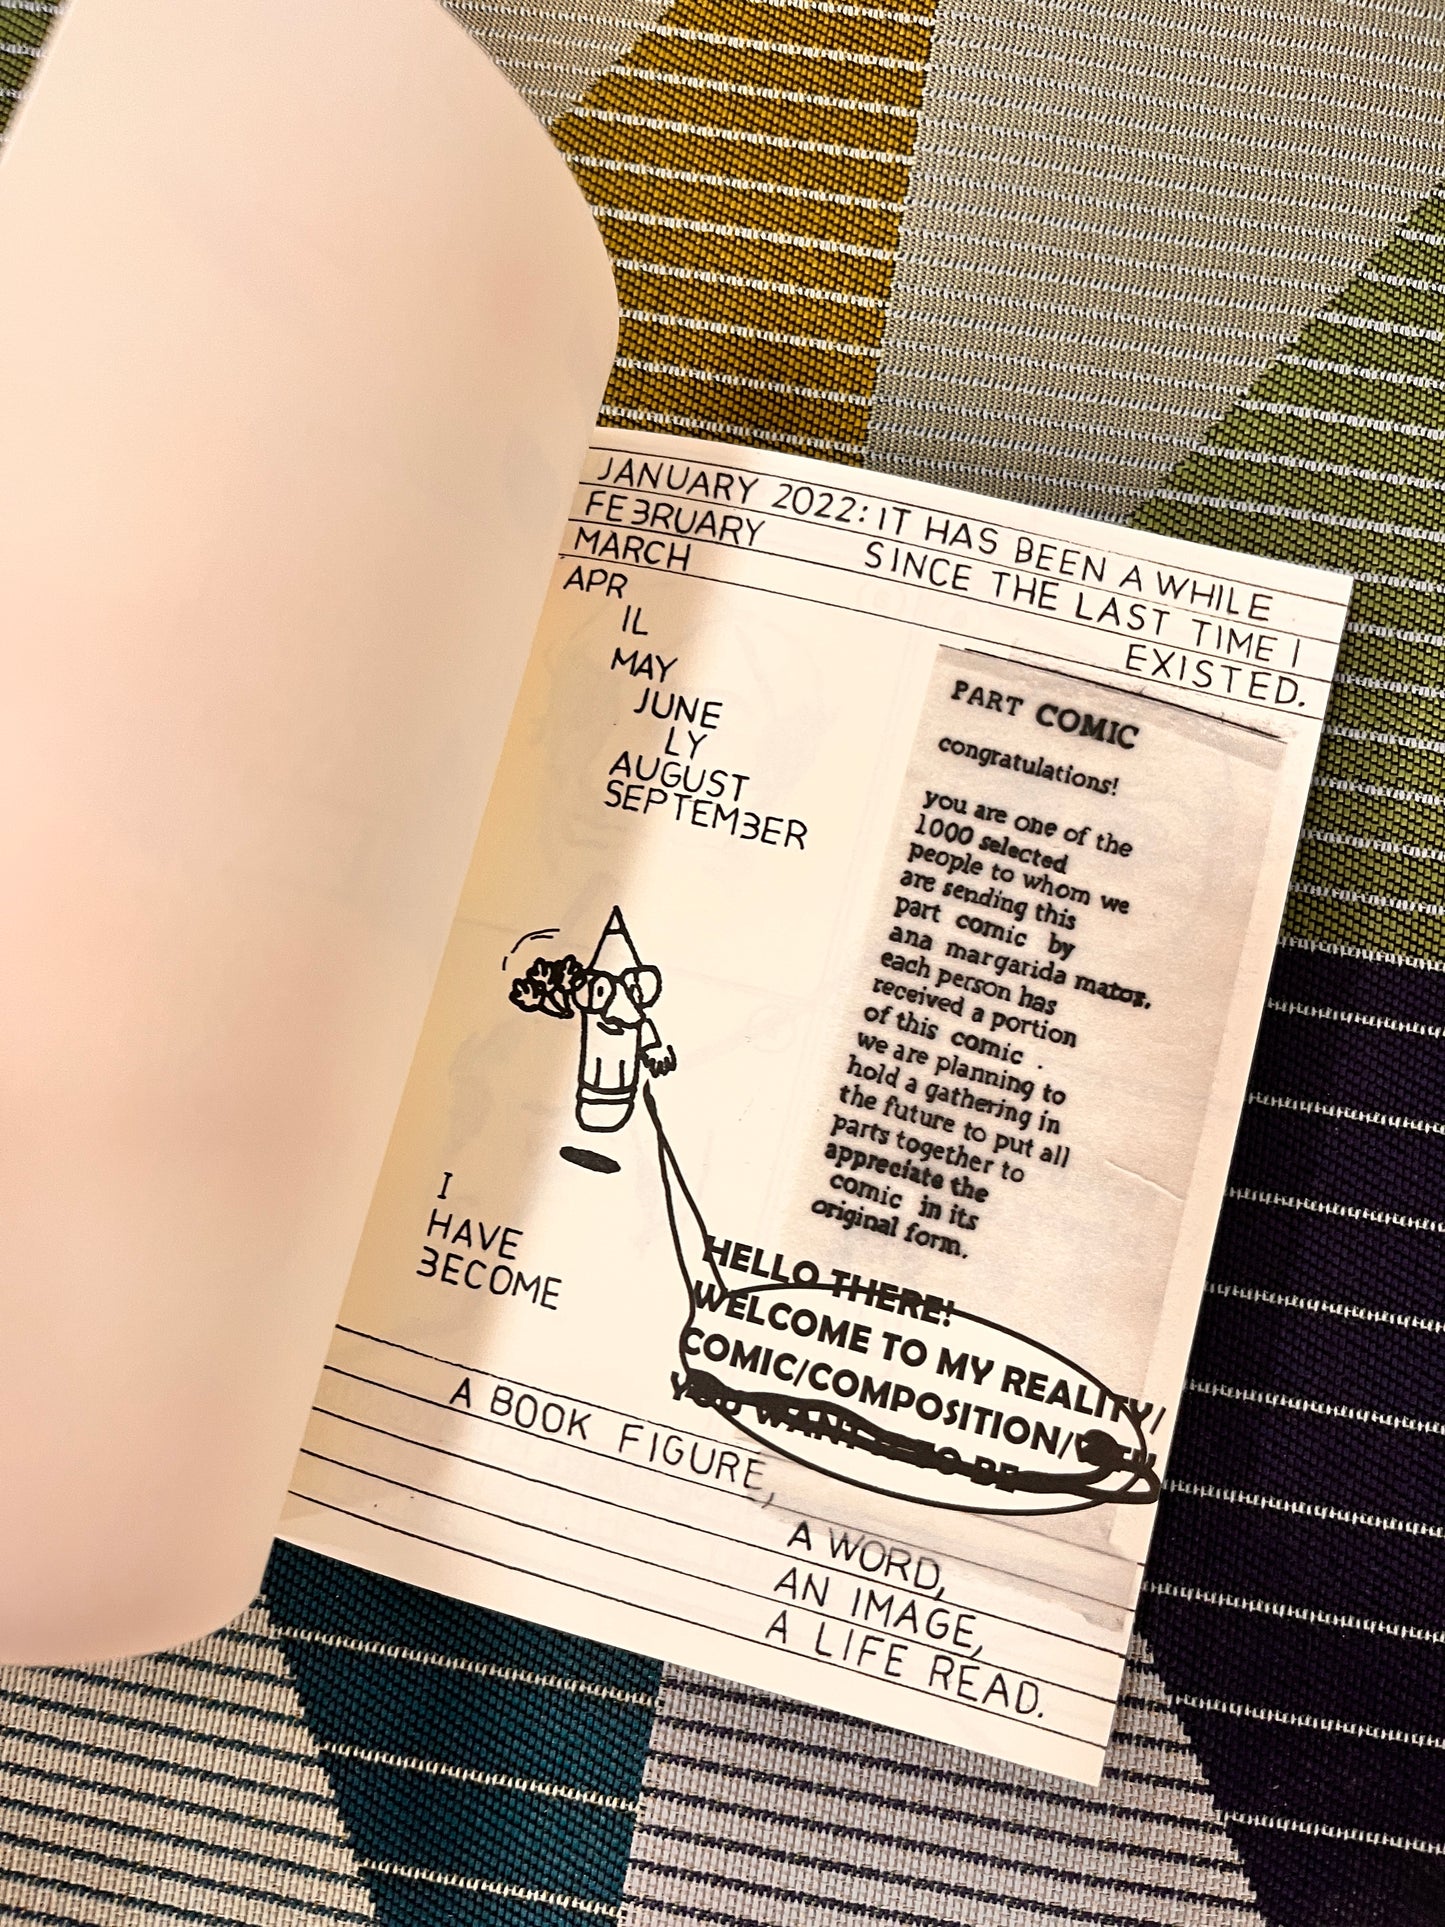 JANUARY 2022: IT HAS BEEN A WHILE
FEBRUARY SINCE THE LAST TIME I
MARCH EXISTED.
APR
IL
MAY
JUNE
LY
AUGUST
SEPTEMBER
PART COMIC
congratulations!
you are one of the
1000 selected
people to whom we
are sending this
part comic by
ana margarida matos.
each person has
received a portion
of this comic .
we are planning to
hold a gathering in
the future to put all
parts together to
appreciate the
comic in its
original form.
HELLO THERE!
WELCOME TO MY REALITY/
COMIC/COMPOSITION/
YOU WANT IT TO BE
I
HAVE
BECOME
A BOOK FIGURE,
A WORD,
AN IMAGE,
A LIFE READ.